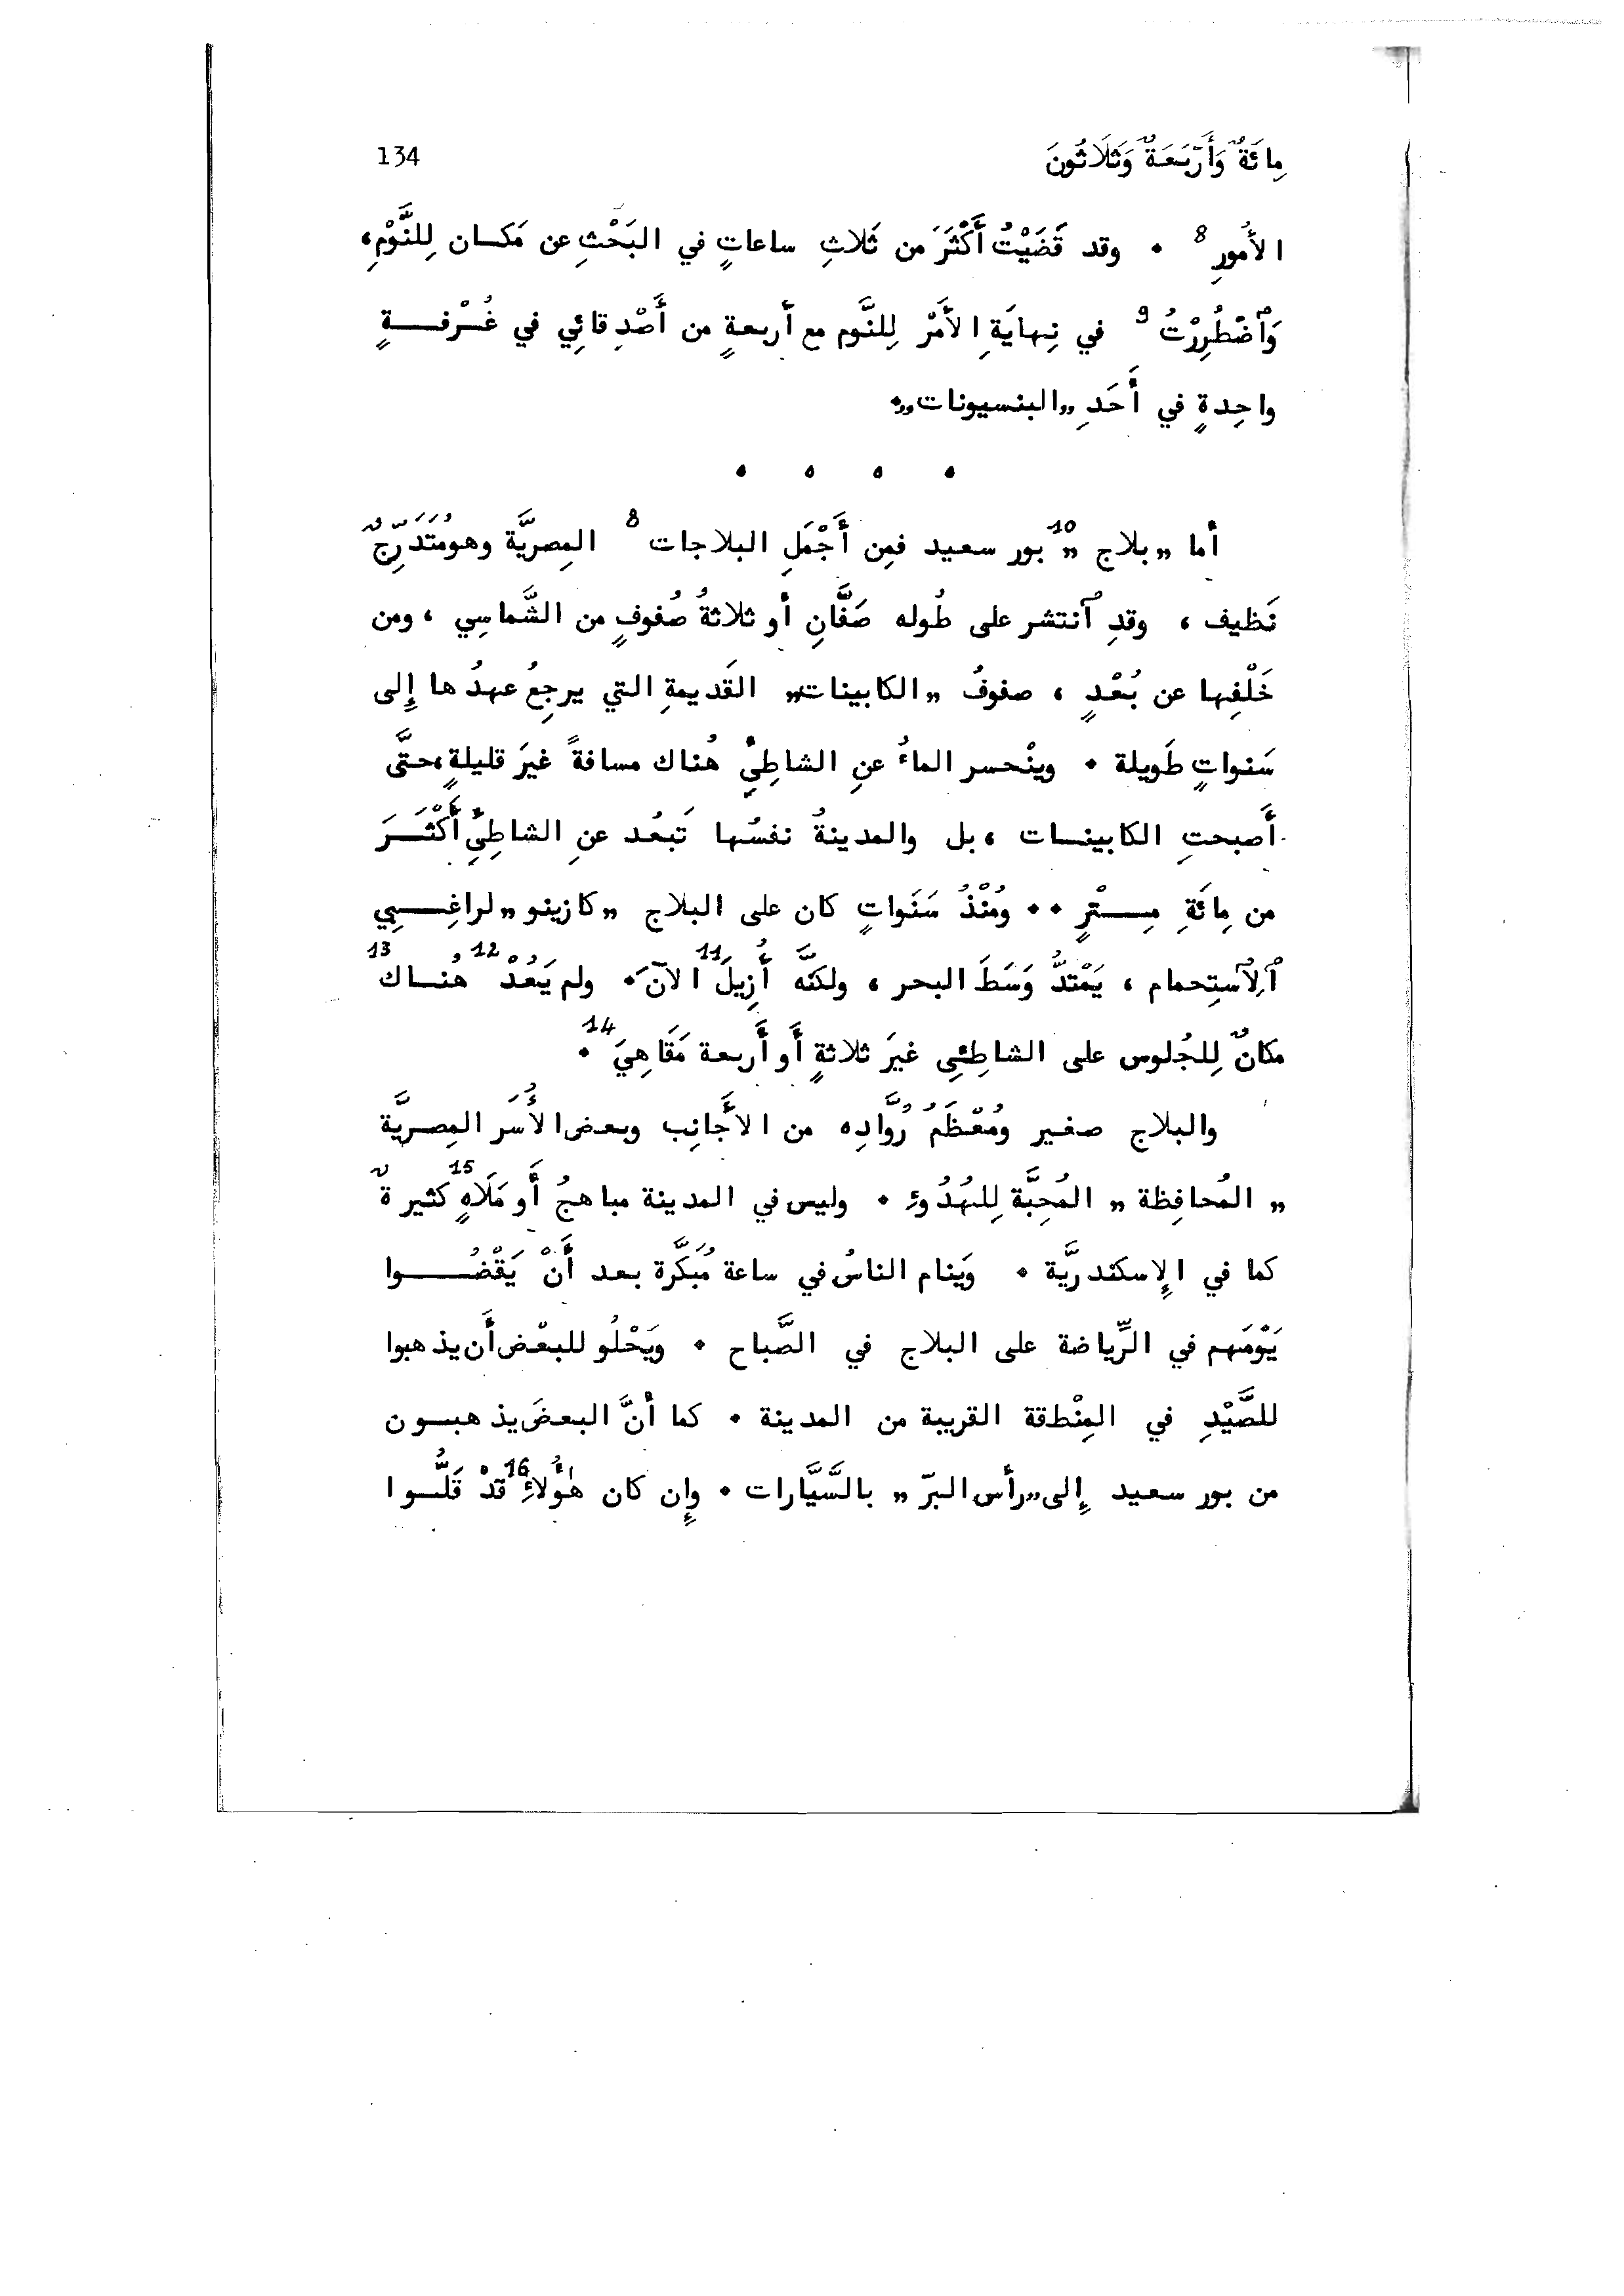 مِائَةٌ وَأَرْبَعَةٌ وَثَلَاثُونَ 134
الأُمُورِ 8 . وقد قَضَيْتُ أَكْثَرَ من ثَلاثِ ساعاتٍ في البَحْثِ عن مَكـان لِلنَّوْمِ،
وَٱضْطُرِرْتُ 9 في نِهايَةِ الأَمْرِ لِلنَّوم مع أَربعةٍ من أَصْدِقائِي في غُرْفــةٍ
واحِدةٍ في أَحَدِ „البنسيونات„.
. . . .
أما „بلاج„ 10 بور سعيد فمِن أَجْمَلِ البلاجات 8 المِصرِيَّة وهو مُتَدَرِّجٌ
نَظيف ، وقدِ ٱنتشر على طُوله صَفَّانِ أو ثلاثةُ صُفوفٍ من الشَّماسِي ، ومن
خَلْفِها عن بُعْدٍ ، صفوفُ „الكابينات„ القَديمةِ التي يرجِعُ عهدُها إِلى
سَنواتٍ طَويلة . وينْحسر الماءُ عنِ الشاطِئِ هُناك مسافةً غيرَ قليلةٍ،حتَّى
أَصبحتِ الكابينـات ، بل والمدينةُ نفسُها تَبعُد عنِ الشاطِئِ أَكْثَــرَ
من مِائَةِ مِــتْرٍ .. ومُنْذُ سَنَواتٍ كان على البلاج „كازينو„ لراغِــبِي
ٱلِٱستِحمام ، يَمْتَدُّ وَسَطَ البحر ، ولكنَّه أُزِيلَ 11 الآنَ . ولم يَعُدْ 12 هُنـاك 13
مكانٌ لِلجُلوس على الشاطِئِي غيرَ ثلاثةٍ أَو أَربعة مَقَاهِيَ 14 .
والبلاج صغير ومُعْظَمُ رُوَّادِه من الأَجانِب وبعض الأُسَر المِصرِيَّة
„ المُحافِظة „ المُحِبَّة لِلهُدُوءِ . وليس في المدينة مباهجُ أَو مَلَاهٍ 15 كثيرةٌ
كما في الإِسكندرِيَّة . وَينام الناسُ في ساعة مُبَكَّرة بعد أَنْ يَقْضُـــوا
يَوْمَهم في الرِّياضة على البلاج في الصَّباح . ويَحْلُو للبعْض أَن يذهبوا
للصَّيْدِ في المِنْطقة القريبة من المدينة . كما أنَّ البعضَ يذهبــون
من بور سعيد إِلى „رأس البرّ „ بالسَّيَّارات . وإِن كان هٰؤُلاءِ 16 قدْ قَلُّــوا